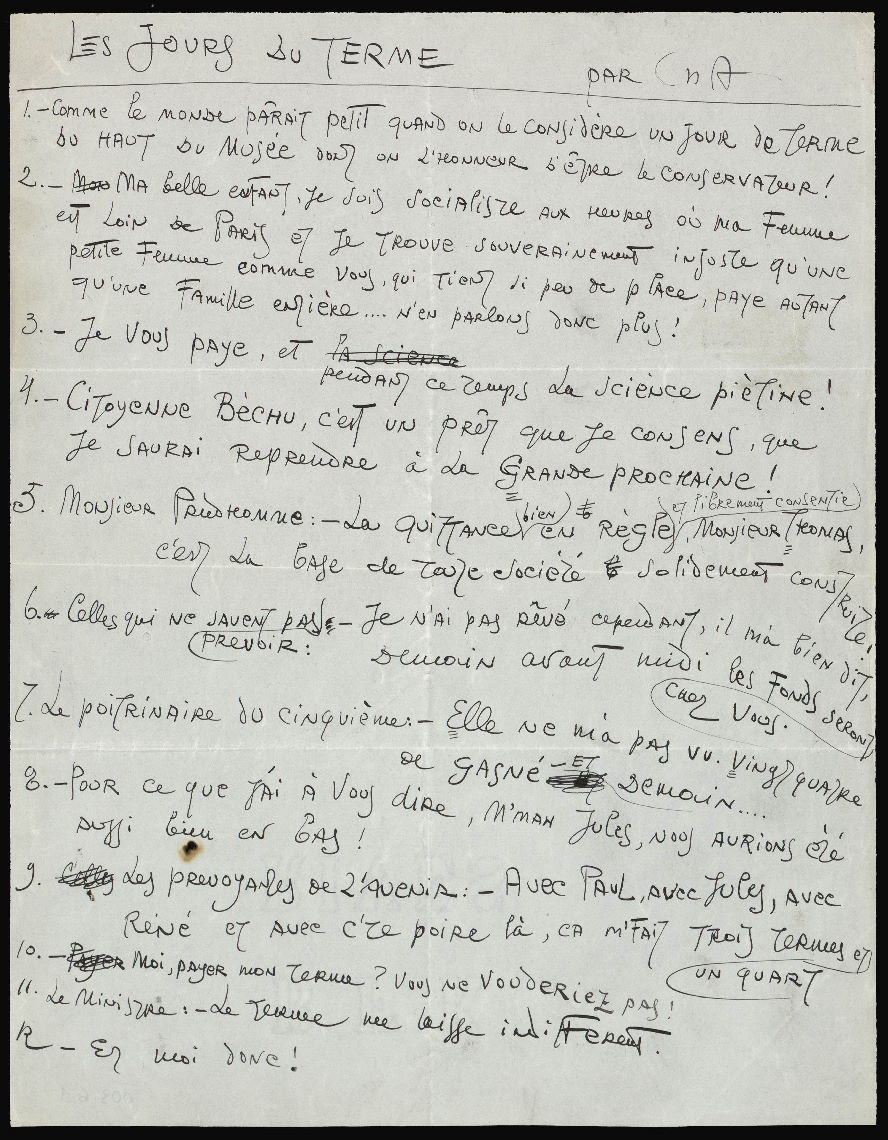 LES JOURS DU TERME
PAR
1.- Comme le monde pârait petit quand on le considère un jour de terme
du haut du Musée dont on a l'honneur d'être le conservateur!
2.- Ma belle enfant, je suis socialiste aux heures où ma Femme
est loin de Paris et je trouve souverainement injuste qu'une
petite Femme comme vous, qui tient si peu de place, paye autant
qu'une Famille entière.... n'en parlons donc plus!
3. - Je vous paye, et la science
pendant ce temps la science piètine!
4.- Citoyenne Béchu, c'est un prêt que je consens, que
je saurai reprendre à la Grande prochaine!
5. Monsieur Prudhomme:- La quittance bien en règle, et librement consentie Monsieur Thomas,
c'est la base de toute société solidement construite!
6.- Celles qui ne savent pas - Je n'ai pas rêvé cependant, il m'a bien dit,
prevoir: Demain avant midi les fonds seront
chez vous.
7. Le poitrinaire du cinquième:- Elle ne m'a pas vu. Vingt quatre
de gagné - Et Demain....
8.- Pour ce que j'ai à vous dire, M'man Jules, nous aurions été
aussi bien en bas!
9. Les prevoyantes de l'avenir:- Avec Paul, avec Jules, avec
Réné et avec c'te poire là, ca m'fait trois termes et
un quart
10.- Payer Moi, payer mon terme? Vous ne vouderiez pas!
11. Le Ministre:- Le terme me laisse indifferent.
R - Et moi donc!